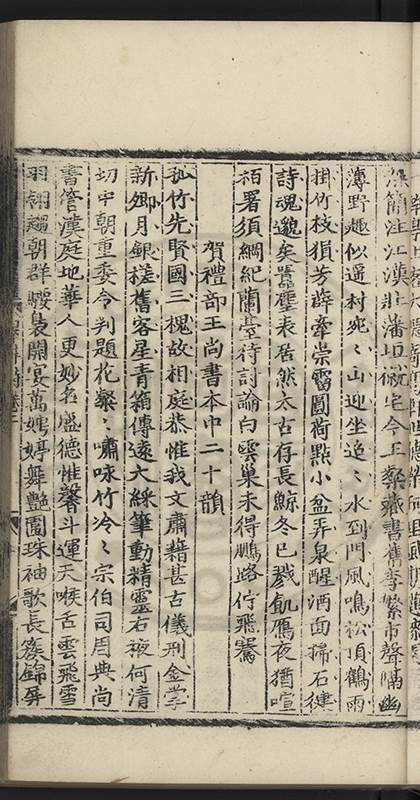 簡注江漢壯藩垣
薄野趣似遥村宛〻山迎坐迢〻水到門風鳴松頂鶴雨
掛竹枝猿芳薜牽崇霤圓荷點小盆弄泉醒酒面掃石
詩魂邈矣囂塵表居然太古存長鯨冬已戮飢鴈夜猶喧
栢署須綱紀蘭臺待討論白雲巢未得鵬路佇飛騫
賀禮部王尚書本中二十韻
孤竹先賢國三槐故相庭恭惟我文肅藉甚古儀刑金掌
新卿月銀槎舊客星青箱傳遠大綵筆動精靈右掖何清
切中朝重委令判題花粲〻嘯咏竹泠〻宗伯司周典尚
書管漢庭地華人更妙名盛德惟馨斗運天喉舌雲飛雪
羽翎趨朝群騕褭開宴萬娉婷舞艷園珠袖歌長簇錦屏